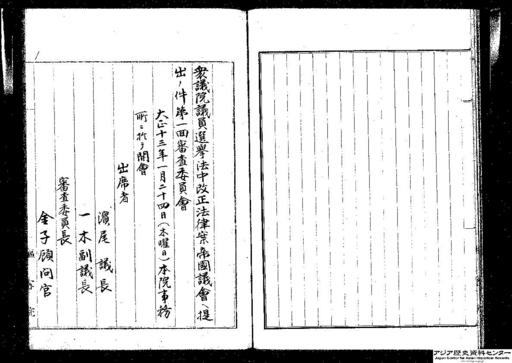 衆議院議員選擧法中改正法律案帝國議會ヘ提
出ノ件第一回審査委員會
大正十三年一月二十四日(木曜日)本院事務
所ニ於テ開會
出席者
濵尾議長
一木副議長
審査委員長
金子顧問官
アジア歴史資料センター
Japan Center for Asian Historical Records